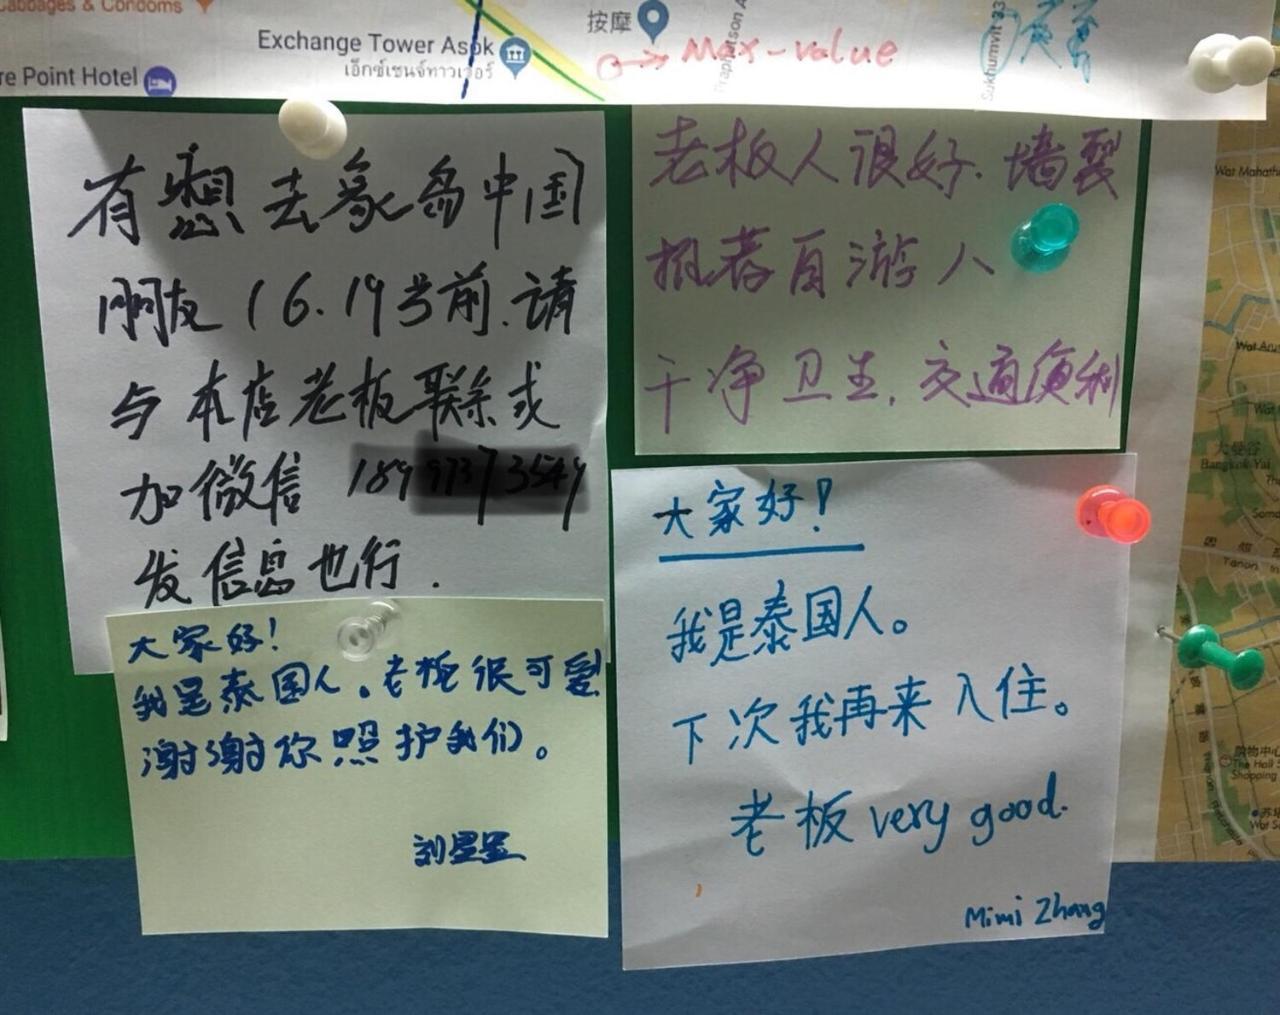 Cabbages & Condoms
Exchange Tower Asok
เอ็กซ์เชนจ์ทาวเวอร์
re Point Hotel
按摩
Max-value
Sukhumvit 33
有想去象岛中国
朋友16.19号前.请
与本店老板联系或
加微信 189
发信息也行.
老板人很好.墙裂
推荐自游人
干净卫生,交通便利
大家好!
我是泰国人。老板很可爱
谢谢你照护我们。
刘星星
大家好!
我是泰国人。
下次我再来入住。
老板 very good.
Mimi Zhang
Wat Mahatha
Wat Aru
大曼谷
Bangkok Yai
购物中心
The Hall
Shopping